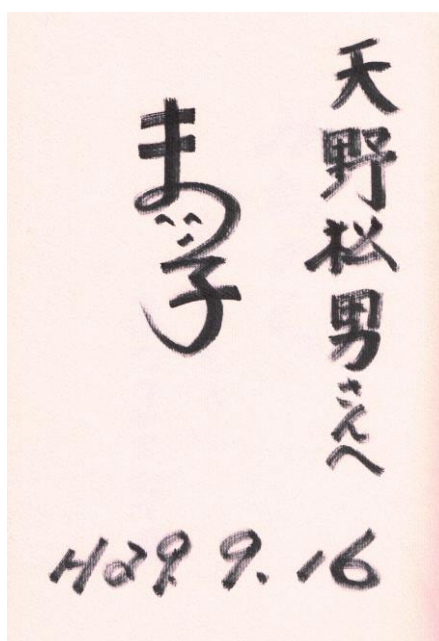 天野松男さんへ
まつ子
H29. 9. 16